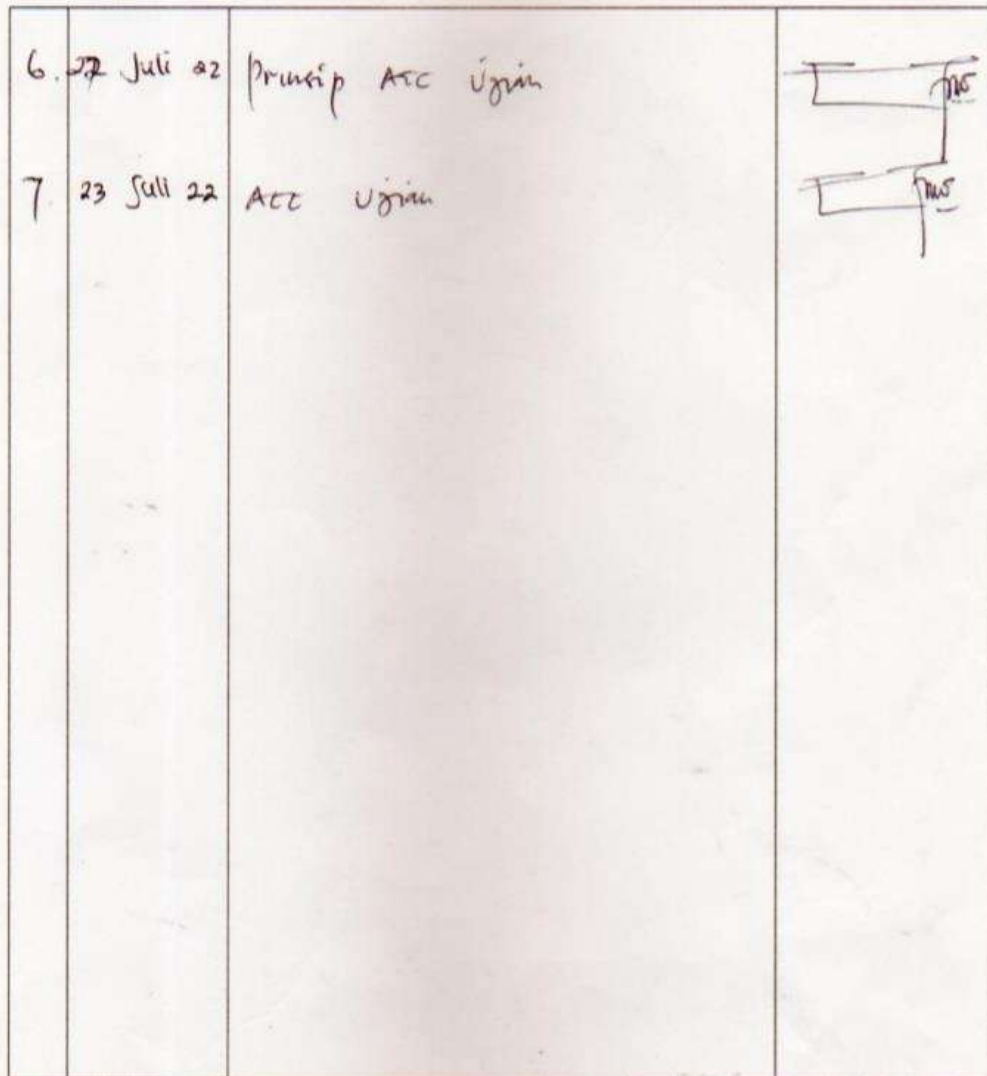 6. 22 Juli 22 Prinsip ACC Ujian
7. 23 Juli 22 ACC Ujian